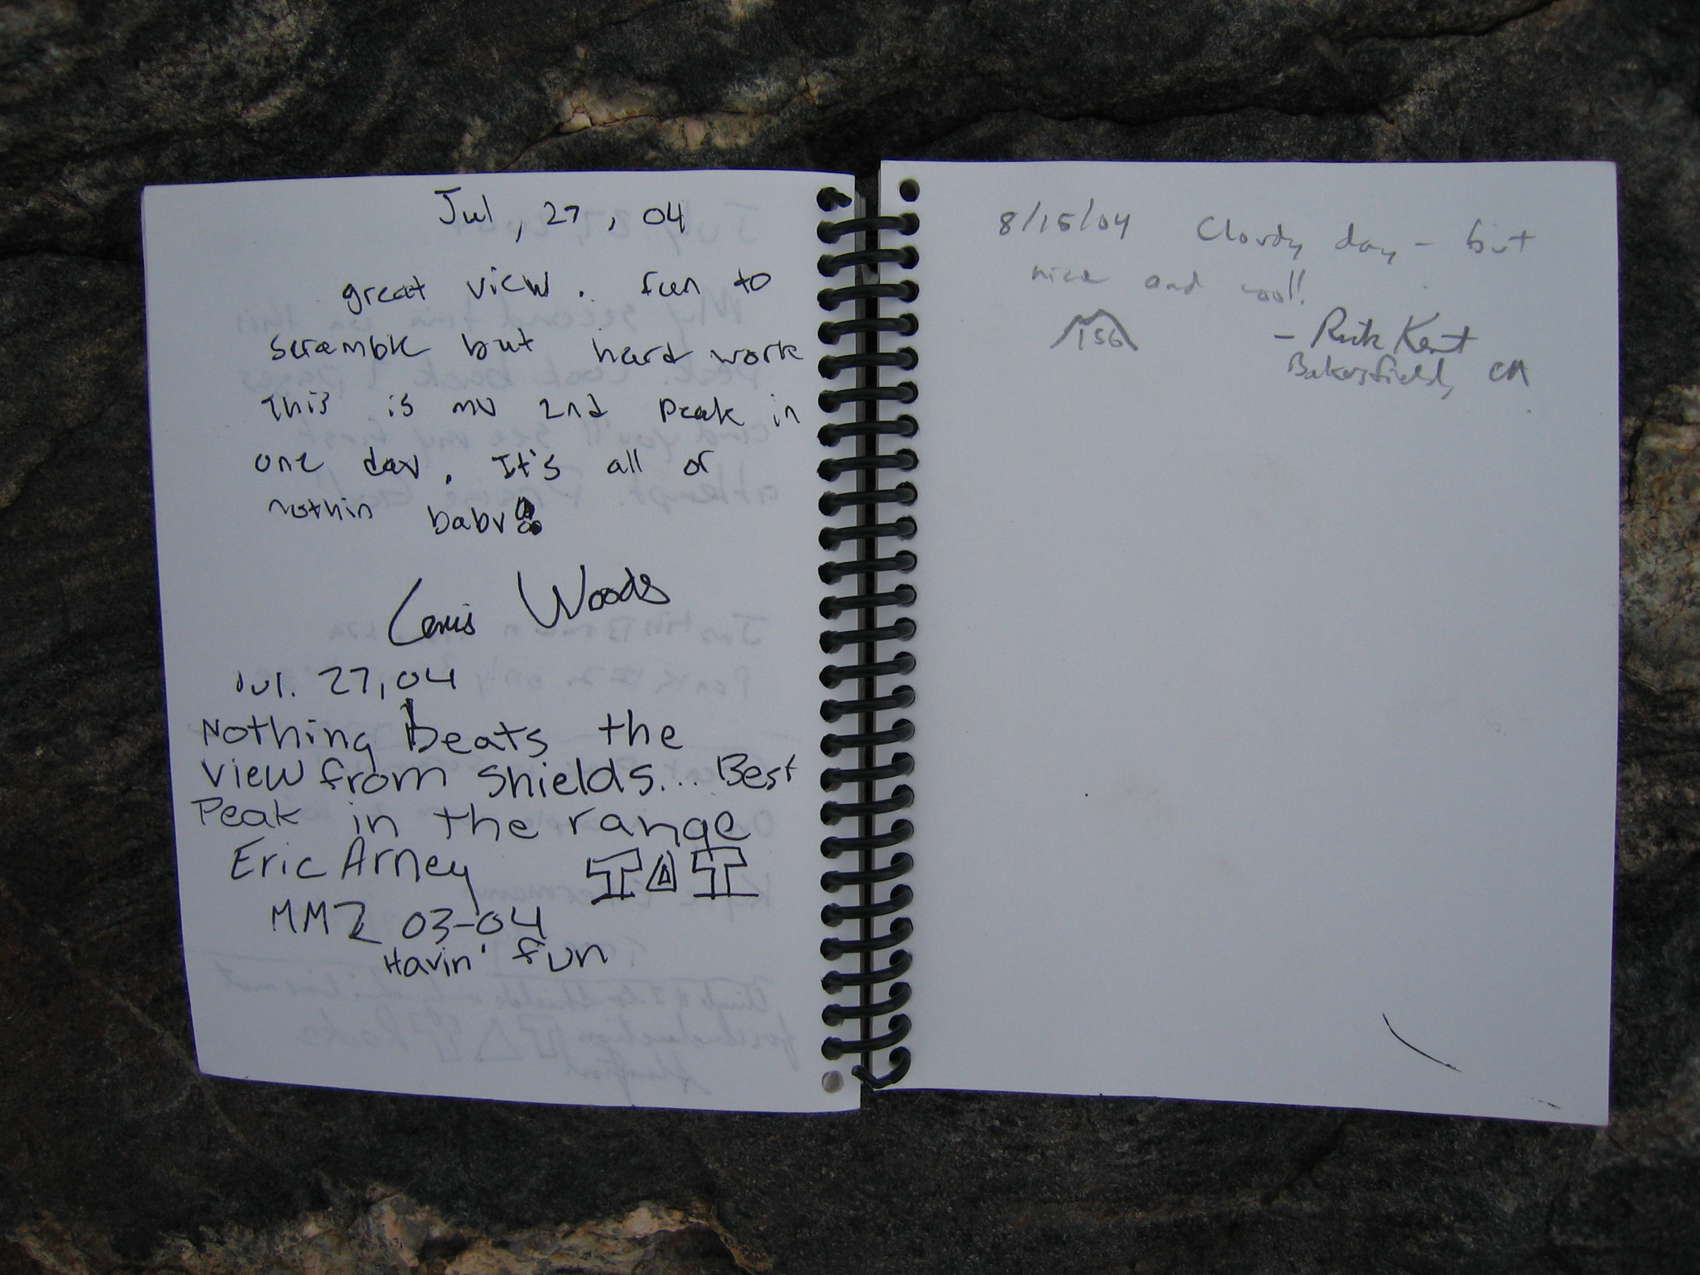 Jul, 27, 04
great view. fun to
scramble but hard work
This is my 2nd peak in
one day. It's all or
nothin baby!
Woods
Jul. 27, 04
Nothing beats the
view from Shields... Best
Peak in the range
Eric Arney
03-04
Havin' fun
8/15/04 Cloudy day - but
nice and cool!
- Rick Kent
Bakersfield, CA